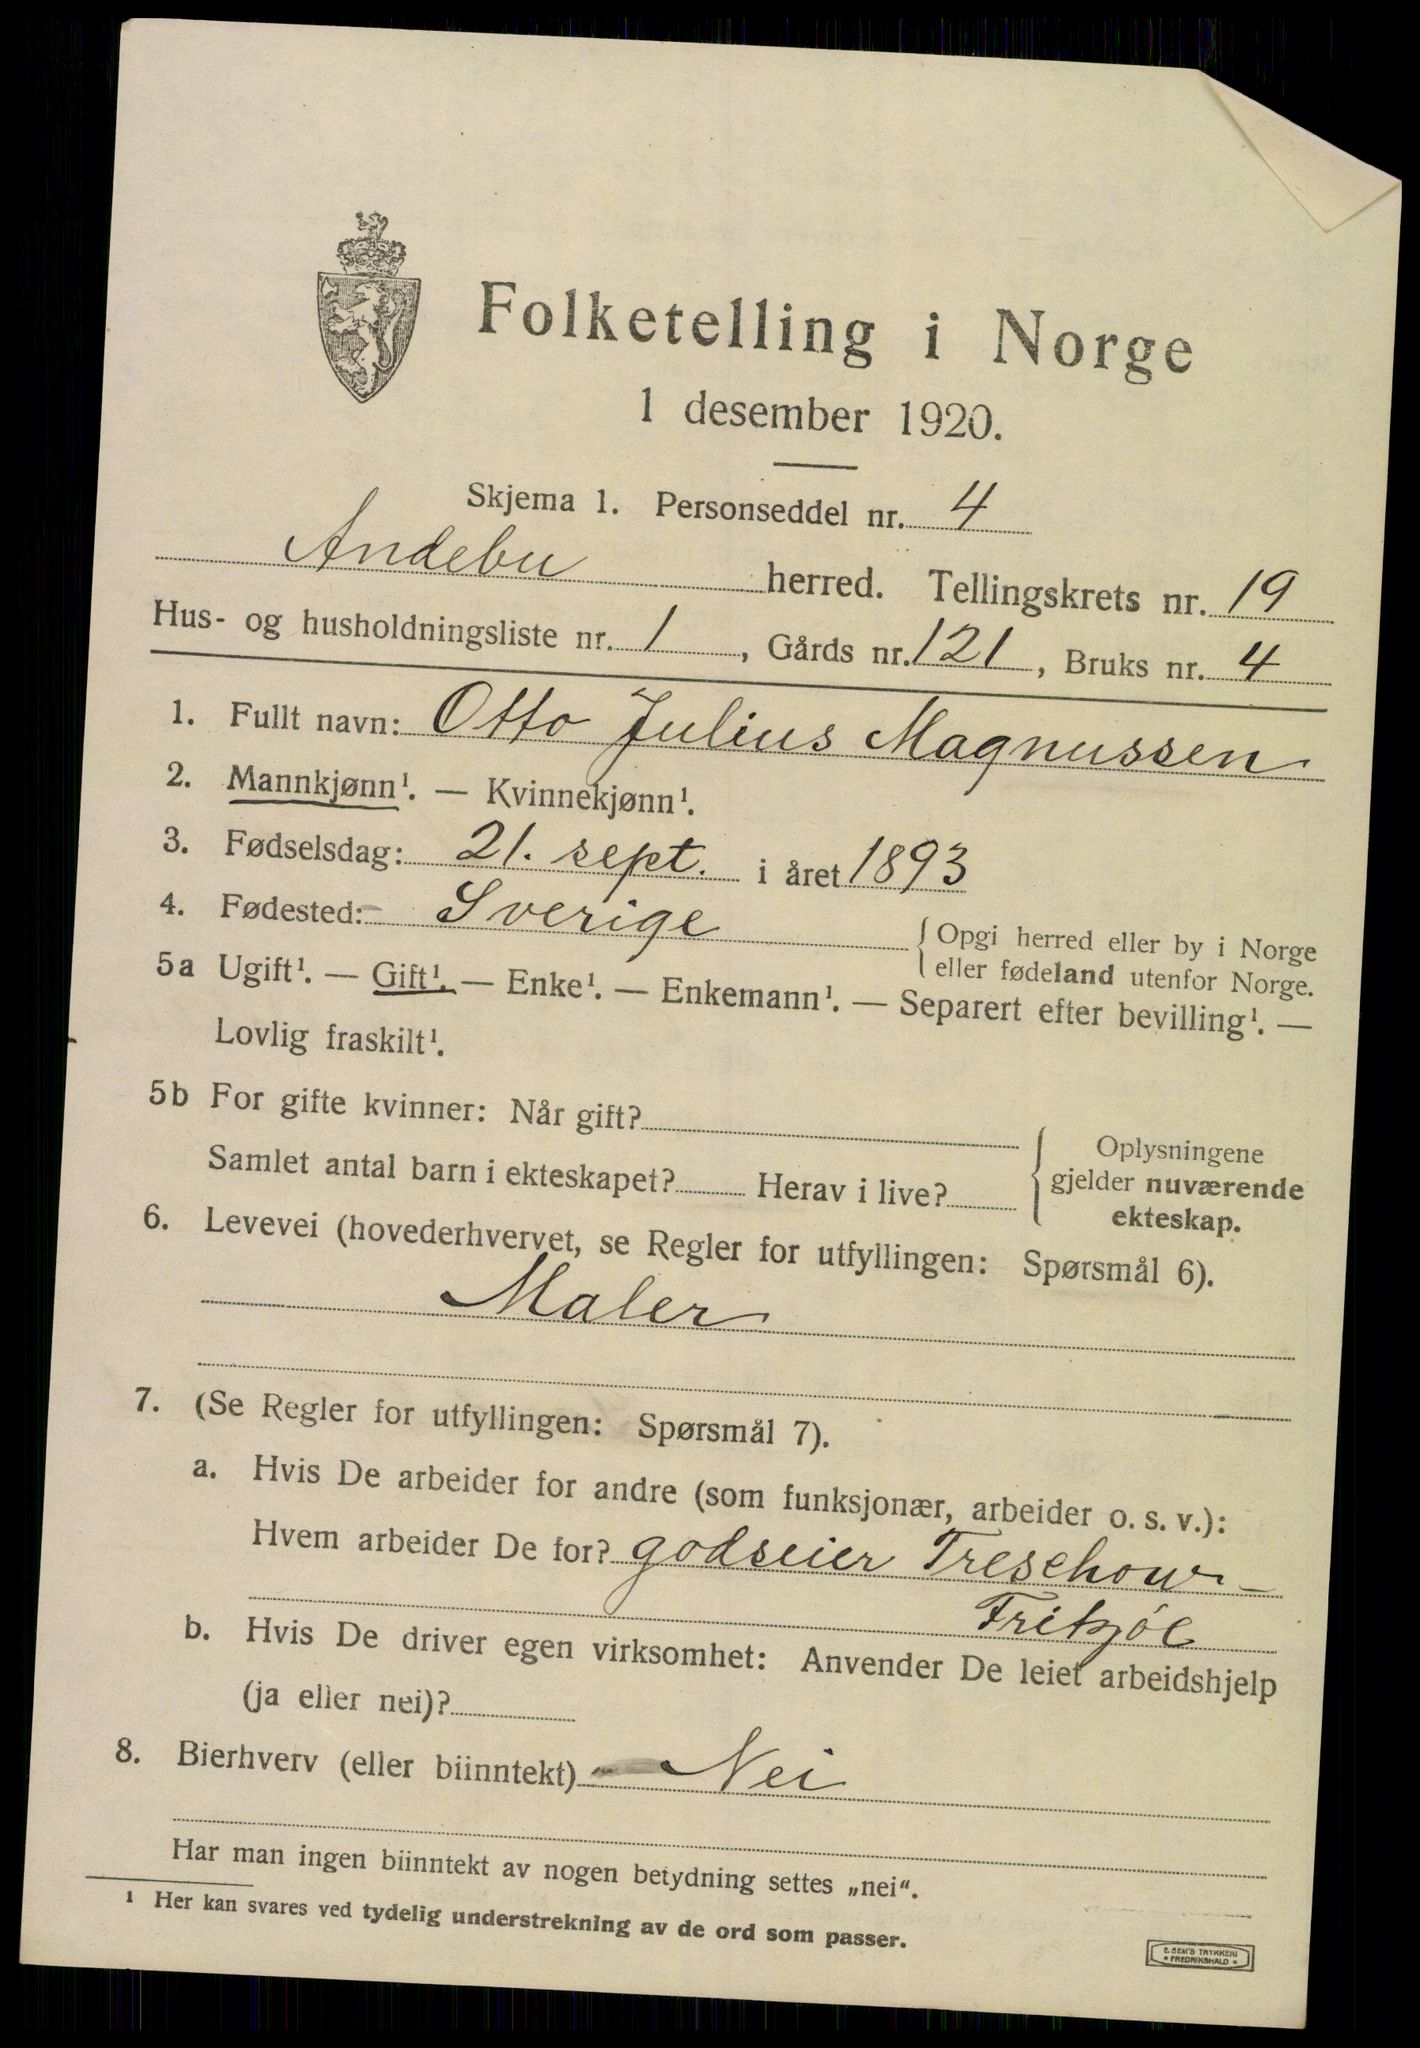 Folketelling i Norge
1 desember 1920.
Skjema 1. Personseddel nr. 4
Andebu herred. Tellingskrets nr. 19
Hus- og husholdningsliste nr. 1, Gårds nr. 121, Bruks nr. 4
1. Fullt navn: Otto Julius Magnussen
2. Mannkjønn¹. — Kvinnekjønn¹.
3. Fødselsdag: 21. sept. i året 1893
4. Fødested: Sverige { Opgi herred eller by i Norge
eller fødeland utenfor Norge.
5a Ugift¹. — Gift¹. — Enke¹. — Enkemann¹. — Separert efter bevilling¹. —
Lovlig fraskilt¹.
5b For gifte kvinner: Når gift?
Samlet antal barn i ekteskapet? Herav i live?
{ Oplysningene
gjelder nuværende
ekteskap.
6. Levevei (hovederhvervet, se Regler for utfyllingen: Spørsmål 6).
Maler
7. (Se Regler for utfyllingen: Spørsmål 7).
a. Hvis De arbeider for andre (som funksjonær, arbeider o. s. v.):
Hvem arbeider De for? godseier Treschow-
Fritzöe
b. Hvis De driver egen virksomhet: Anvender De leiet arbeidshjelp
(ja eller nei)?
8. Bierhverv (eller biinntekt) Nei
Har man ingen biinntekt av nogen betydning settes „nei“.
¹ Her kan svares ved tydelig understrekning av de ord som passer.
E. SEM'S TRYKKERI
* FREDRIKSHALD *